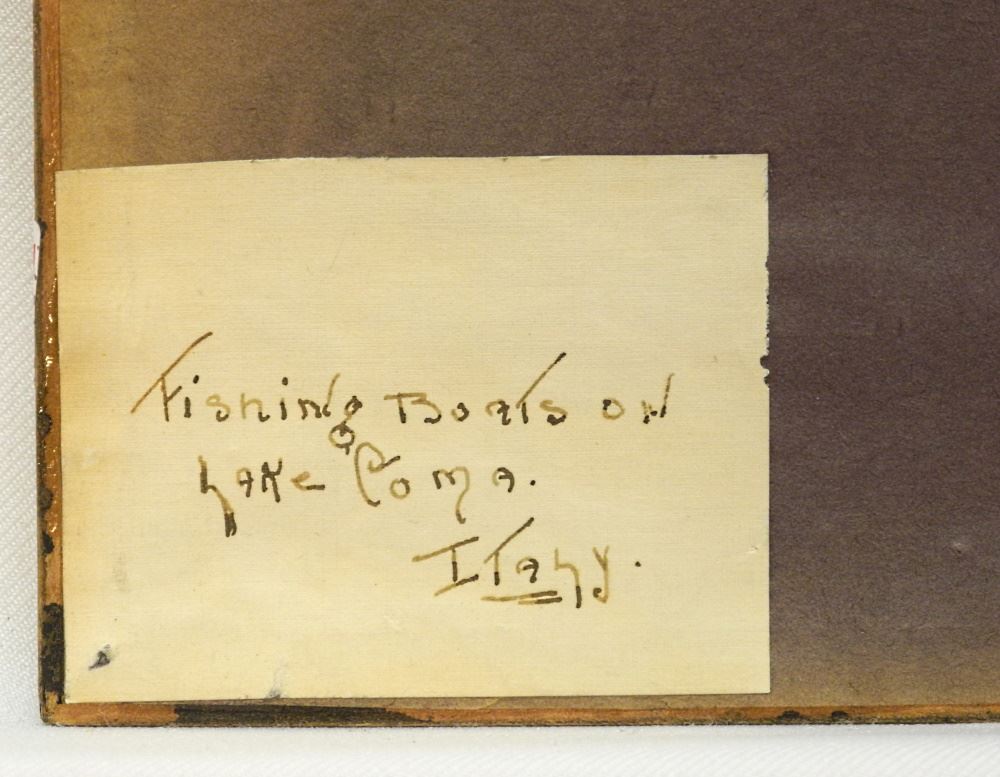 Fishing Boats on
Lake Coma.
Italy.